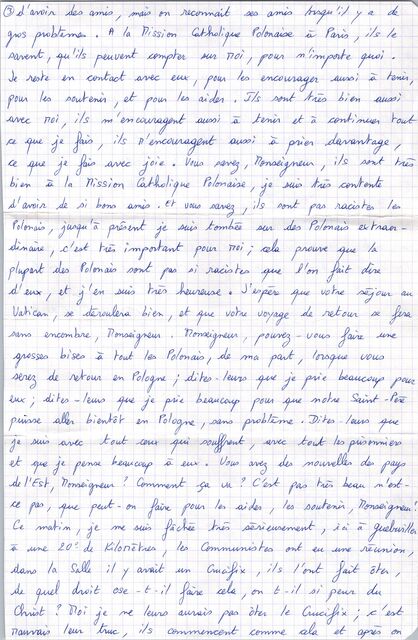 ③ d'avoir des amis, mais on reconnait ses amis lorsqu'il y a de
gros problèmes. A la Mission Catholique Polonaise à Paris, ils le
savent, qu'ils peuvent compter sur moi, pour n'importe quoi.
Je reste en contact avec eux, pour les encourager aussi à tenir,
pour les soutenir, et pour les aider. Ils sont très bien aussi
avec moi, ils m'encouragent aussi à tenir et à continuer tout
ce que je fais, ils m'encouragent aussi à prier davantage,
ce que je fais avec joie. Vous savez, Monseigneur, ils sont très
bien à la Mission Catholique Polonaise, je suis très contente
d'avoir de si bons amis. Et vous savez, ils sont pas racistes les
Polonais, jusqu'à présent je suis tombée sur des Polonais extraor-
dinaire, c'est très important pour moi ; cela prouve que la
plupart des Polonais sont pas si racistes que l'on fait dire
d'eux, et j'en suis très heureuse. J'espère que votre séjour au
Vatican, se déroulera bien, et que votre voyage de retour se fera
sans encombre, Monseigneur. Monseigneur, pouvez-vous faire une
grosses bises à tout les Polonais, de ma part, lorsque vous
serez de retour en Pologne ; dites-leurs que je prie beaucoup pour
eux ; dites-leurs que je prie beaucoup pour que notre Saint-Père
puisse aller bientôt en Pologne, sans problème. Dites-leurs que
je suis avec tout ceux qui souffrent, avec tout les prisonniers
et que je pense beaucoup à eux. Vous avez des nouvelles des pays
de l'Est, Monseigneur ? Comment ça va ? C'est pas très beau n'est-
ce pas, que peut-on faire pour les aides, les soutenir, Monseigneur ?
Ce matin, je me suis fâchée très sérieusement, ici à
à une 20e de Kilomètres, les Communistes ont eu une réunion,
dans la Salle il y avait un Crucifix, ils l'ont fait ôter,
de quel droit ose-t-il faire cela, on t-il si peur du
Christ ? Moi je ne leurs aurais pas ôter le Crucifix ; c'est
mauvais leur truc, ils commencent comme cela et après on